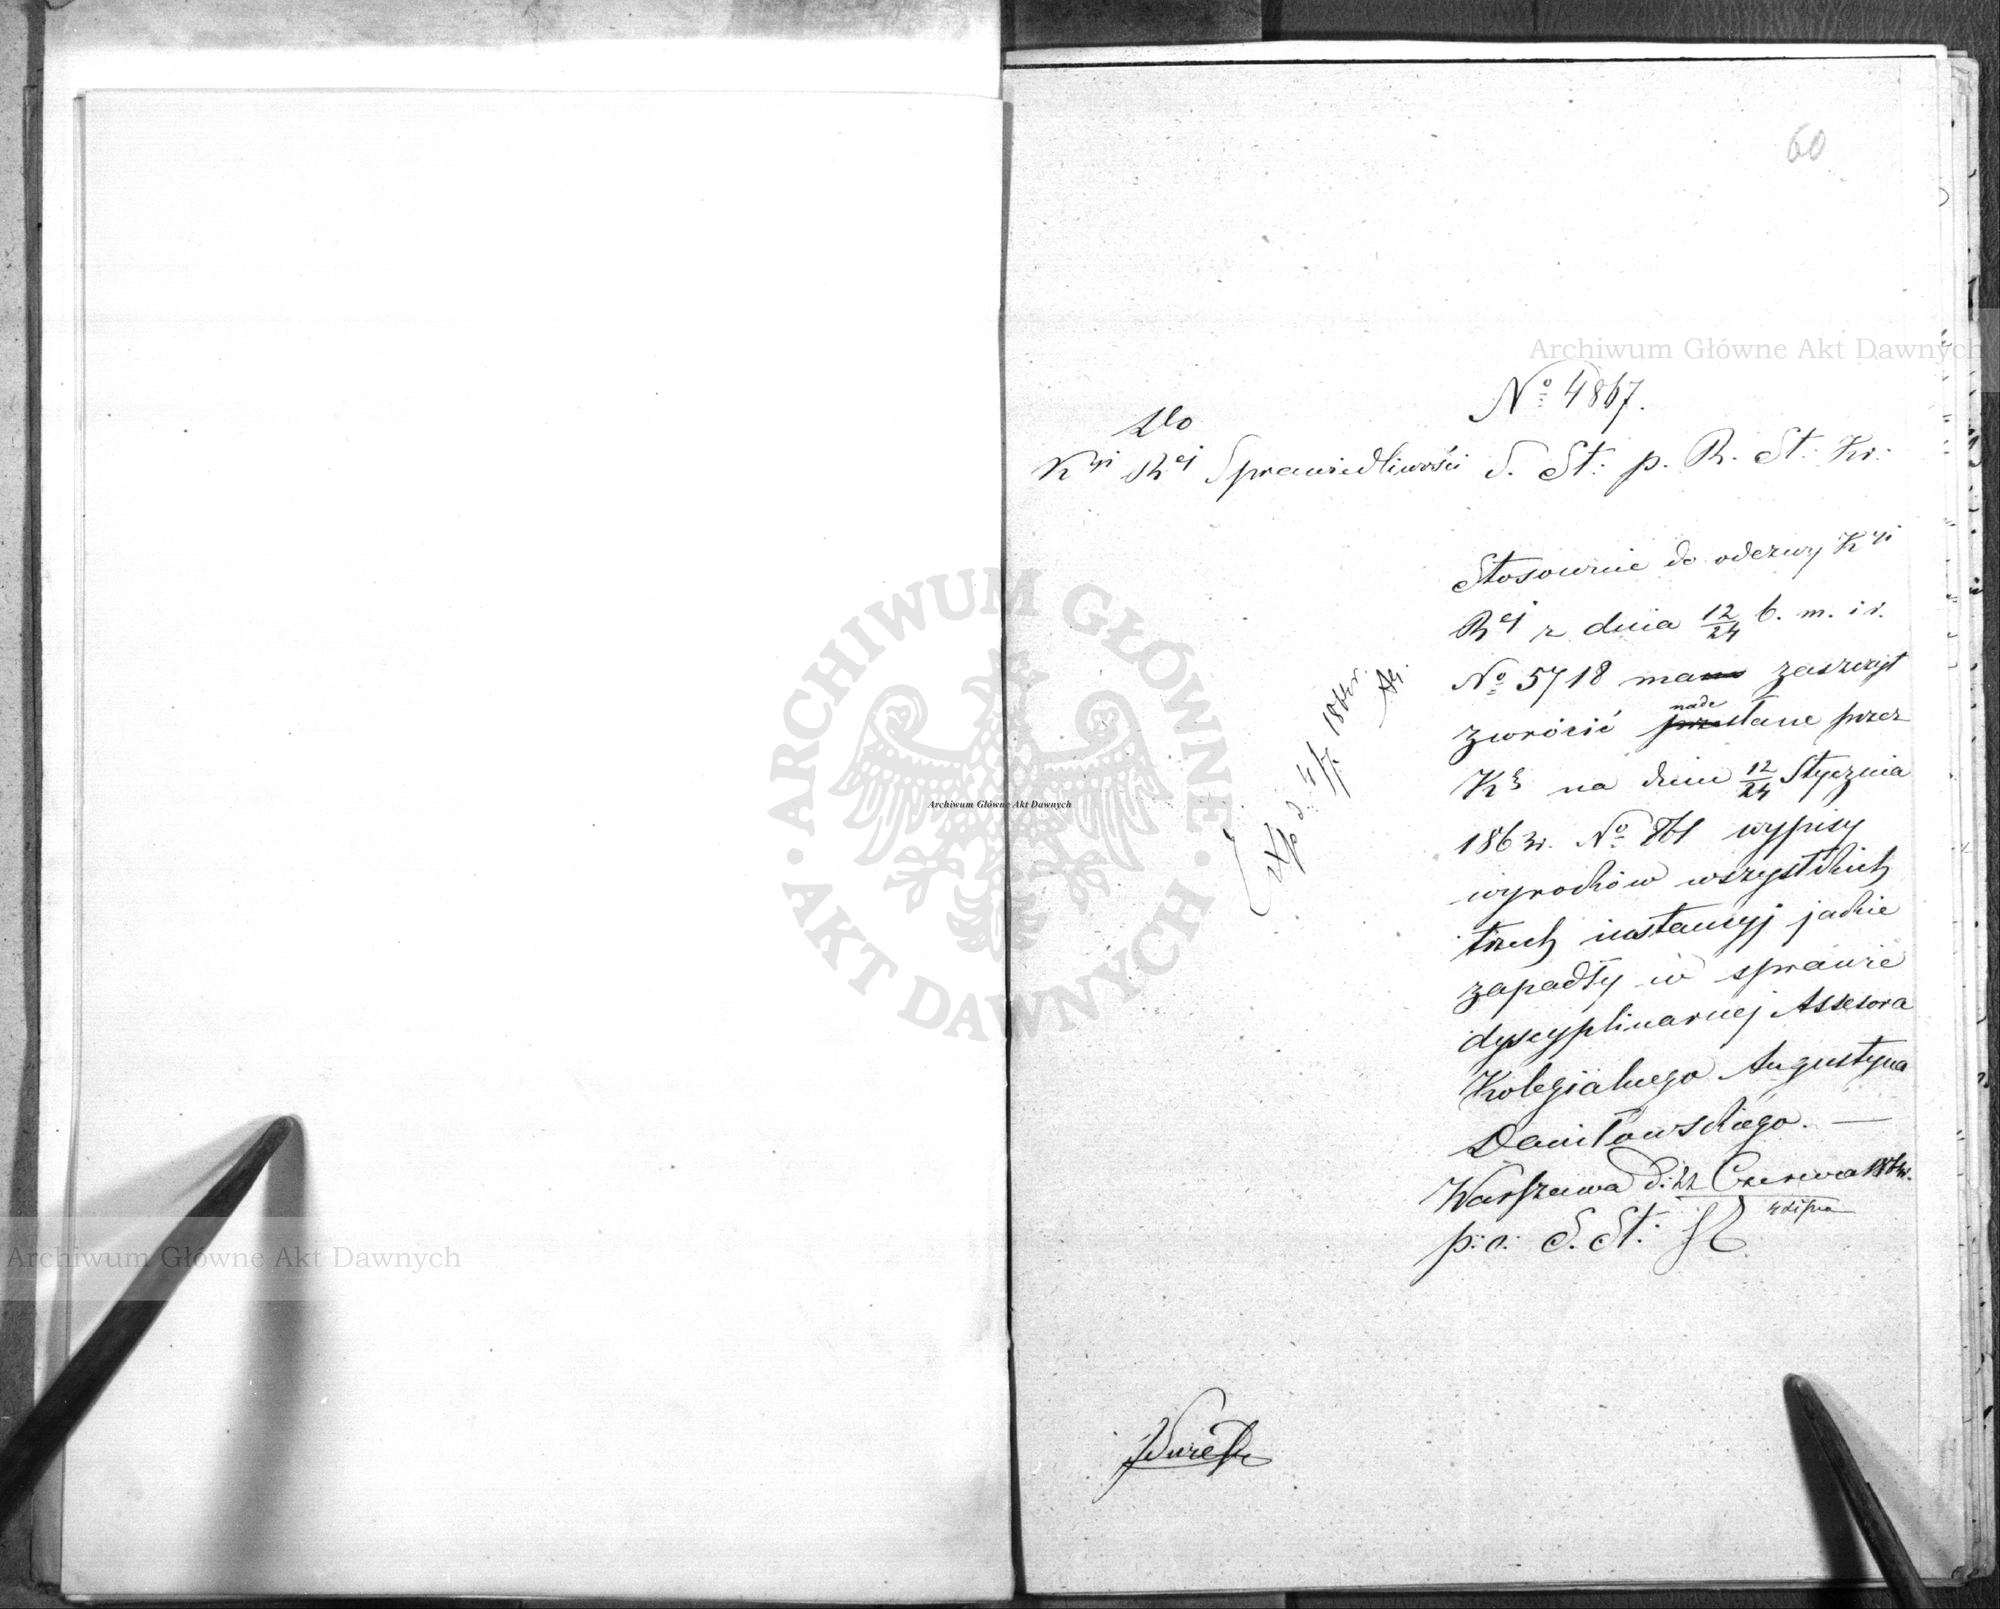 60
Archiwum Główne Akt Dawnych
№ 4867.
Do
Kyi Rej Sprawiedliwości S. St: p. R. St: Kr:
Stosownie do odezwy Kyi
Rej z dnia 12/24 b. m. i r.
№ 5718 mam zaszczyt
zwrócić nade
przesłane przez
Kę na dniu 12/24 Stycznia
1863r. № 861 wypisy
wyroków wszystkich
trzech instancyj jakie
zapadły w sprawie
dyscyplinarnej Assesora
Kolegialnego Augustyna
Daniłowskiego. —
Warszawa d: 22 Czerwca 1864r.
4 Lipca
p: o: S. St:
Exp d. 4/7 1864r.
ARCHIWUM GŁÓWNE
· AKT DAWNYCH ·
Archiwum Główne Akt Dawnych
Archiwum Główne Akt Dawnych